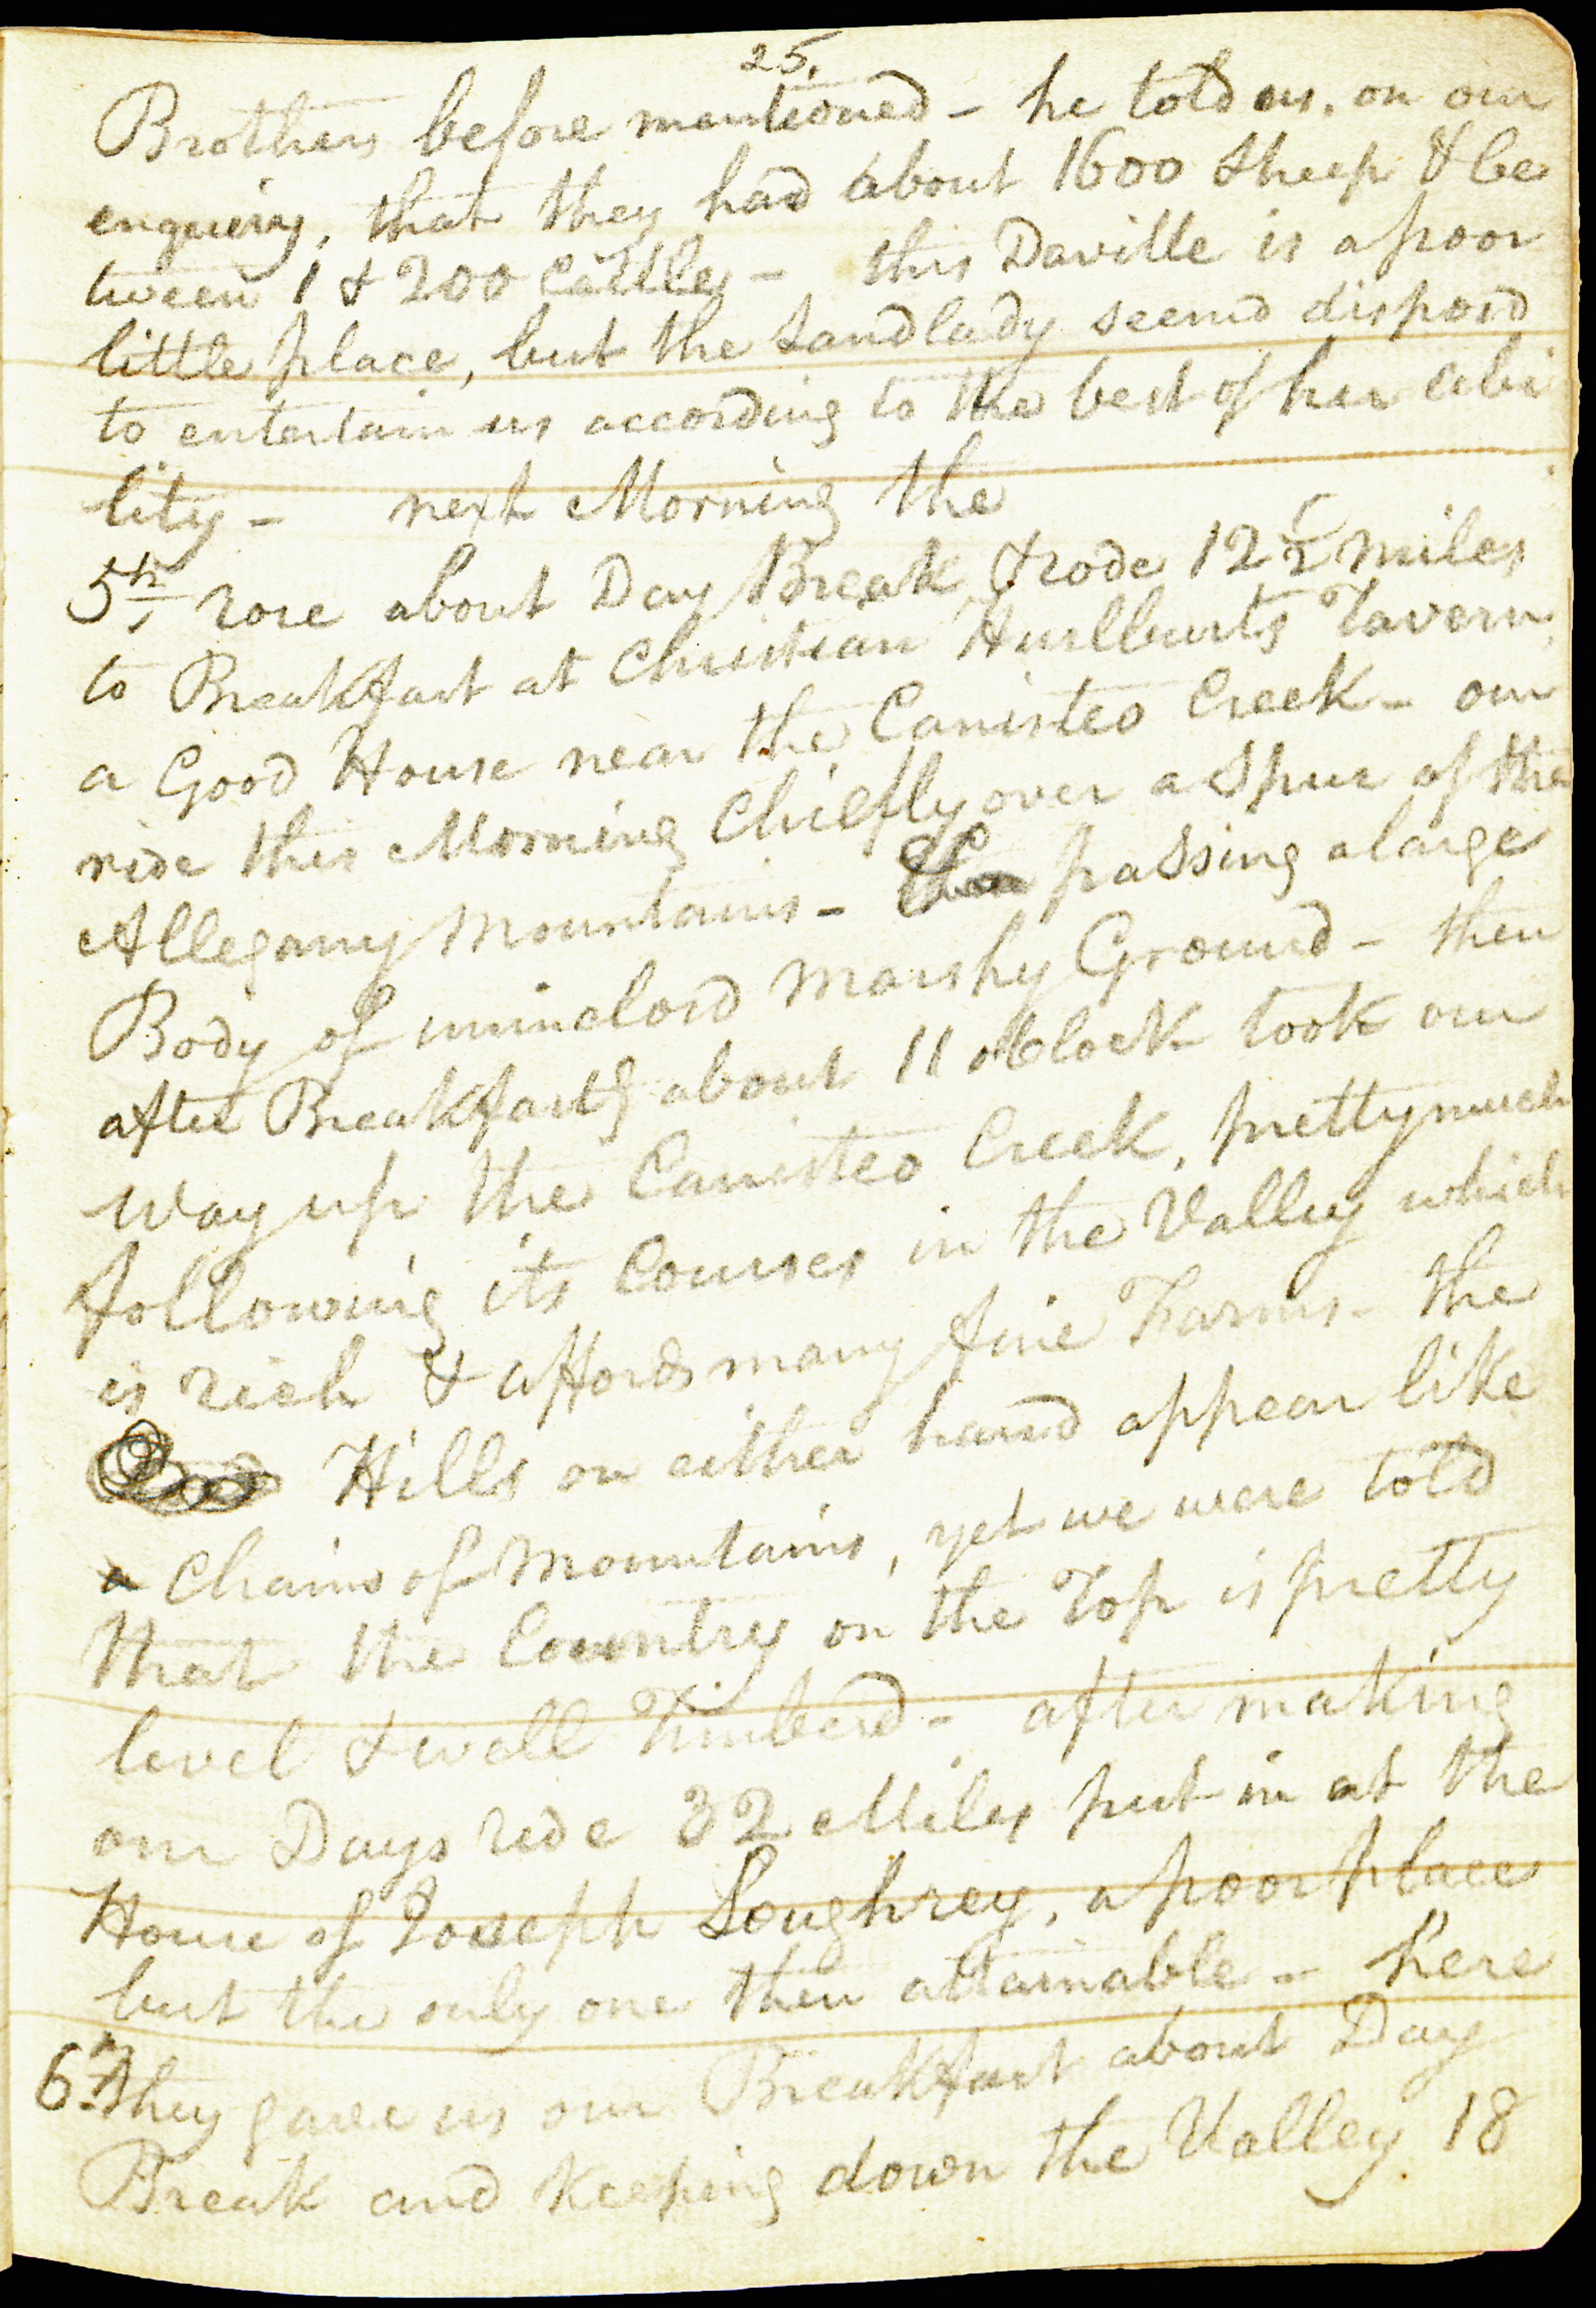 25.
Brothers before mentioned - he told us, on our
enquiry, that they had about 1600 Sheep & be
tween 1 & 200 Cattle - this Daville is a poor
little place, but the Landlady seemd disposd
to entertain us according to the best of her abi
lity - next Morning the
5th, rose about Day Break & rode 12 1/2 miles
to Breakfast at Christian Hurlburts Tavern,
a Good House near the Canisteo Creek - our
ride this Morning Chiefly over a Spur of the
Allegany Mountains - passing a large
Body of uninclosd Marshy Ground - then
after Breakfastg about 11 oClock took our
way up the Canisteo Creek, pretty much
following its Courses in the Valley which
is rich & affords many fine Farms - the
Hills on either hand appear like
a Chains of Mountains, yet we were told
that the Country on the Top is pretty
level & well Timberd - after making
our Days ride 32 Miles put in at the
House of Joseph Loughrey, a poor place
but the only one then attainable - here
6th they gave us our Breakfast about Day
Break and keeping down the Valley 18